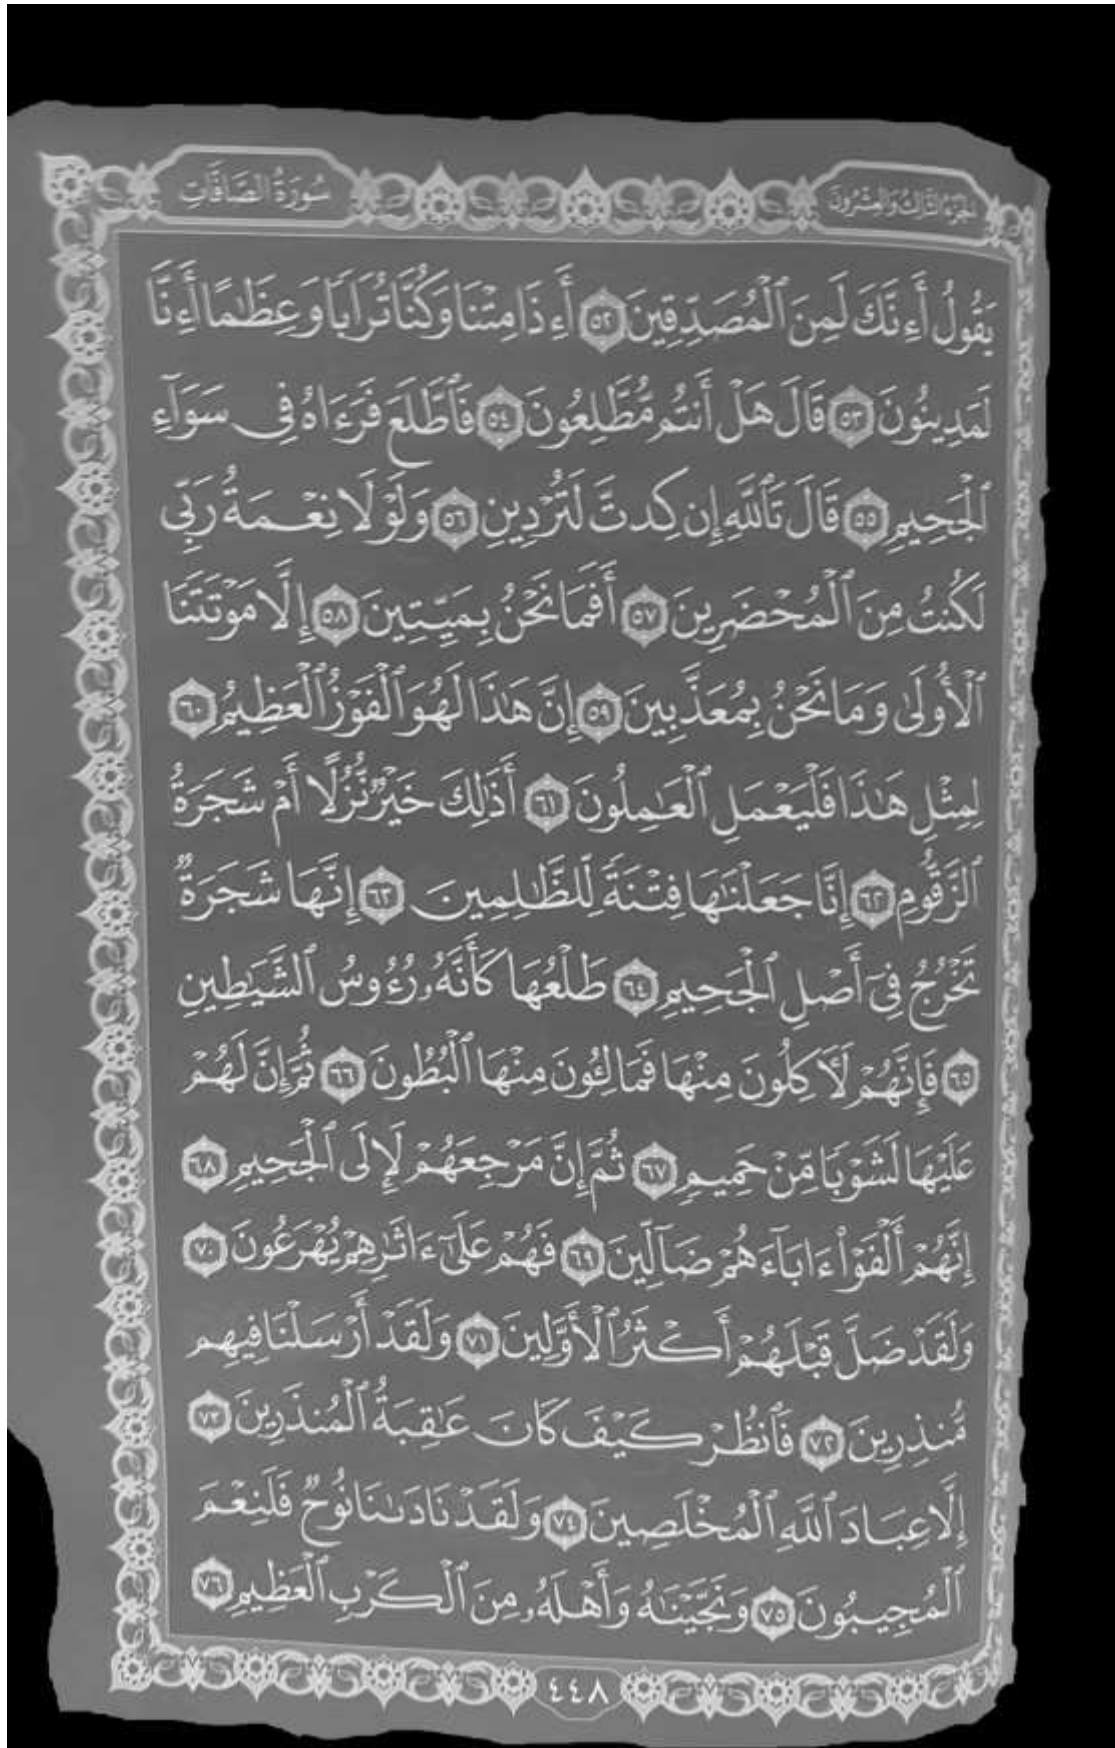 الجزء الثالث والعشرون
سُورَةُ الصَّافَّاتِ
يَقُولُ أَءِنَّكَ لَمِنَ ٱلْمُصَدِّقِينَ ٥٢ أَءِذَا مِتْنَا وَكُنَّا تُرَابًا وَعِظَٰمًا أَءِنَّا
لَمَدِينُونَ ٥٣ قَالَ هَلْ أَنتُم مُّطَّلِعُونَ ٥٤ فَٱطَّلَعَ فَرَءَاهُ فِى سَوَآءِ
ٱلْجَحِيمِ ٥٥ قَالَ تَٱللَّهِ إِن كِدتَّ لَتُرْدِينِ ٥٦ وَلَوْلَا نِعْمَةُ رَبِّى
لَكُنتُ مِنَ ٱلْمُحْضَرِينَ ٥٧ أَفَمَا نَحْنُ بِمَيِّتِينَ ٥٨ إِلَّا مَوْتَتَنَا
ٱلْأُولَىٰ وَمَا نَحْنُ بِمُعَذَّبِينَ ٥٩ إِنَّ هَٰذَا لَهُوَ ٱلْفَوْزُ ٱلْعَظِيمُ ٦٠
لِمِثْلِ هَٰذَا فَلْيَعْمَلِ ٱلْعَٰمِلُونَ ٦١ أَذَٰلِكَ خَيْرٌ نُّزُلًا أَمْ شَجَرَةُ
ٱلزَّقُّومِ ٦٢ إِنَّا جَعَلْنَٰهَا فِتْنَةً لِّلظَّٰلِمِينَ ٦٣ إِنَّهَا شَجَرَةٌ
تَخْرُجُ فِىٓ أَصْلِ ٱلْجَحِيمِ ٦٤ طَلْعُهَا كَأَنَّهُۥ رُءُوسُ ٱلشَّيَٰطِينِ
٦٥ فَإِنَّهُمْ لَـَٔاكِلُونَ مِنْهَا فَمَالِـُٔونَ مِنْهَا ٱلْبُطُونَ ٦٦ ثُمَّ إِنَّ لَهُمْ
عَلَيْهَا لَشَوْبًا مِّنْ حَمِيمٍ ٦٧ ثُمَّ إِنَّ مَرْجِعَهُمْ لَإِلَى ٱلْجَحِيمِ ٦٨
إِنَّهُمْ أَلْفَوْا۟ ءَابَآءَهُمْ ضَآلِّينَ ٦٩ فَهُمْ عَلَىٰٓ ءَاثَٰرِهِمْ يُهْرَعُونَ ٧٠
وَلَقَدْ ضَلَّ قَبْلَهُمْ أَكْثَرُ ٱلْأَوَّلِينَ ٧١ وَلَقَدْ أَرْسَلْنَا فِيهِم
مُّنذِرِينَ ٧٢ فَٱنظُرْ كَيْفَ كَانَ عَٰقِبَةُ ٱلْمُنذَرِينَ ٧٣
إِلَّا عِبَادَ ٱللَّهِ ٱلْمُخْلَصِينَ ٧٤ وَلَقَدْ نَادَىٰنَا نُوحٌ فَلَنِعْمَ
ٱلْمُجِيبُونَ ٧٥ وَنَجَّيْنَٰهُ وَأَهْلَهُۥ مِنَ ٱلْكَرْبِ ٱلْعَظِيمِ ٧٦
٤٤٨